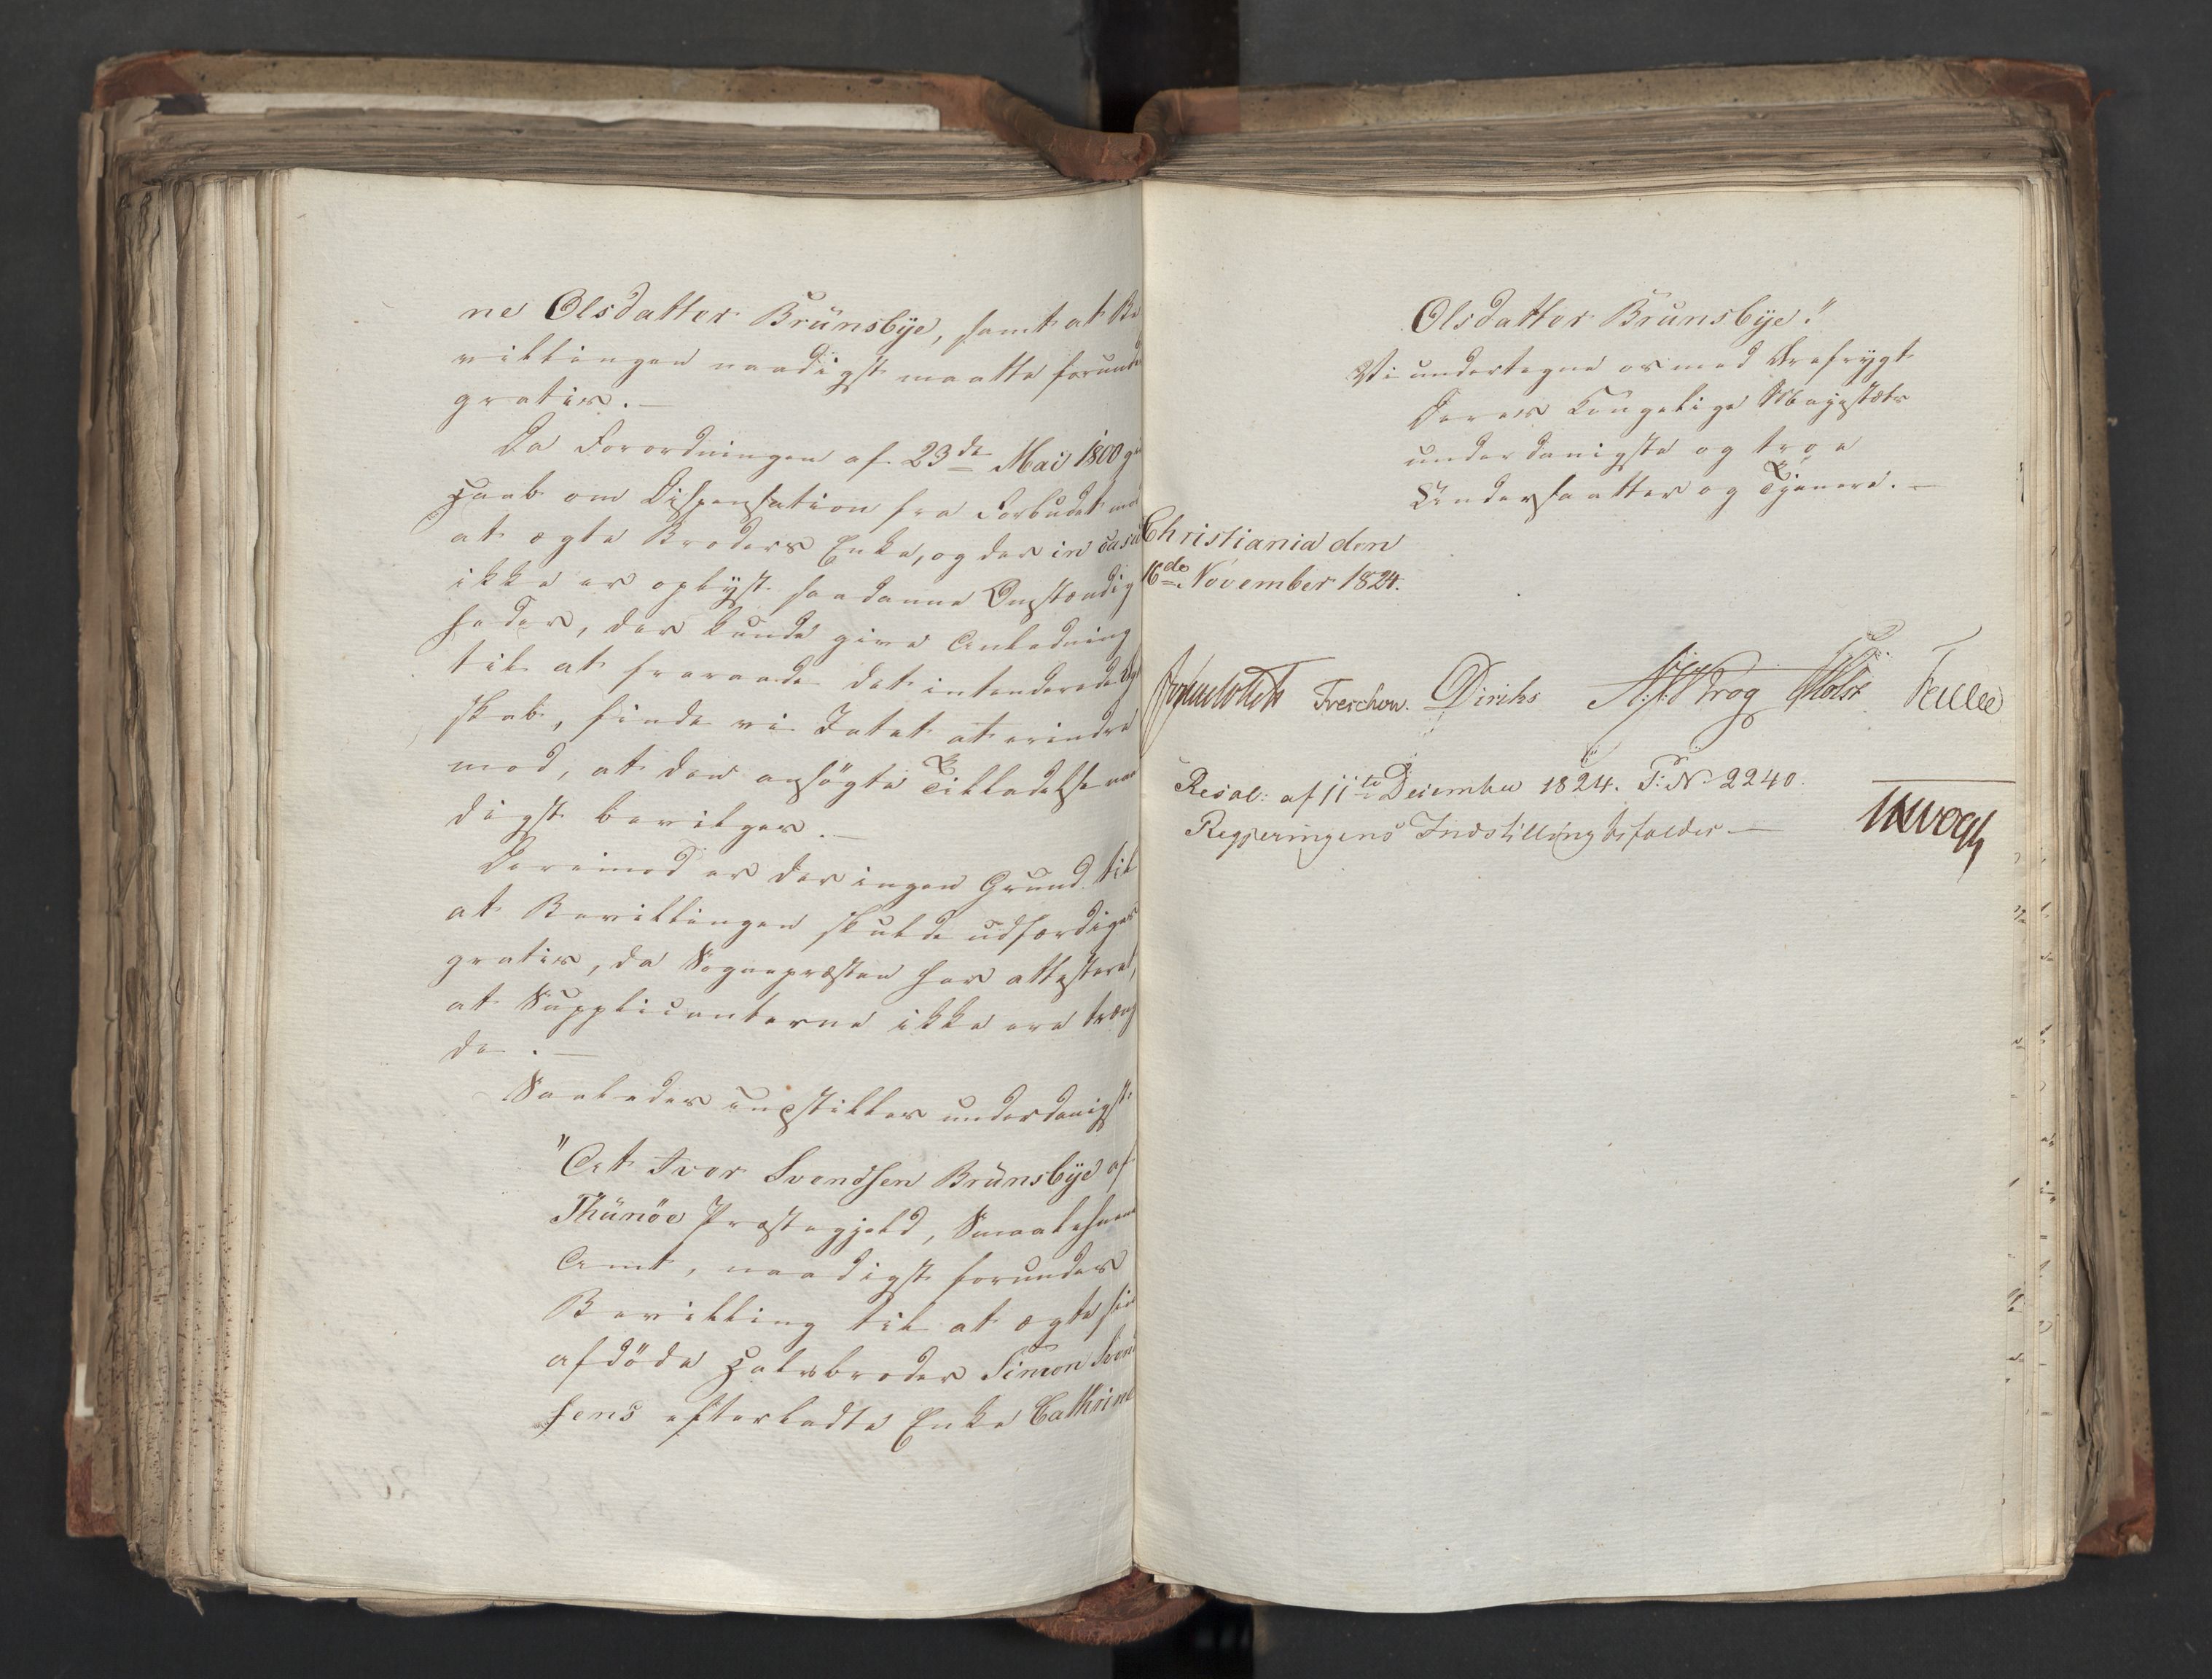 ne Olsdatter Brünsbÿe, samt at Be
villingen naadigst maatte forundes
gratis. —
Da Forordningen af 23de Mai 1800 gir
Haab om Dispensation fra Forbudet mod
at ægte Broders Enke, og der in casu
ikke er oplÿst saadanne Omstændig
heder, der kunde give Anledning
til at fraraade det intenderede Ægt
skab, finde vi Intet at erindre
mod, at den ansögte Tilladelse naa
digst bevilges. —
Derimod er der ingen Grund til
at Bevillingen skulde udfærdiges
gratis, da Sognepræsten har attesteret,
at Supplicanterne ikke ere træng
de. —
Saaledes indstilles underdanigst:
"At Iver Svendsen Brünsbÿe af
Thünöe Præstegjeld, Smaalehnene
Amt, naadigst forundes
Bevilling til at ægte sin
afdöde Halvbroder Simon Svend
sens efterladte Enke Cathrine
Olsdatter Brunsbÿe."
Vi undertegne os med Ærefrÿgt
Deres Kongelige Majestæts
underdanigste og troe
Undersaatter og Tjenere. —
Christiania den
16de November 1824.
Treschow. Diriks Krog Holst
Resol: af 11te December 1824. P: No 2240.
Regjeringens Indstilling bifaldes —